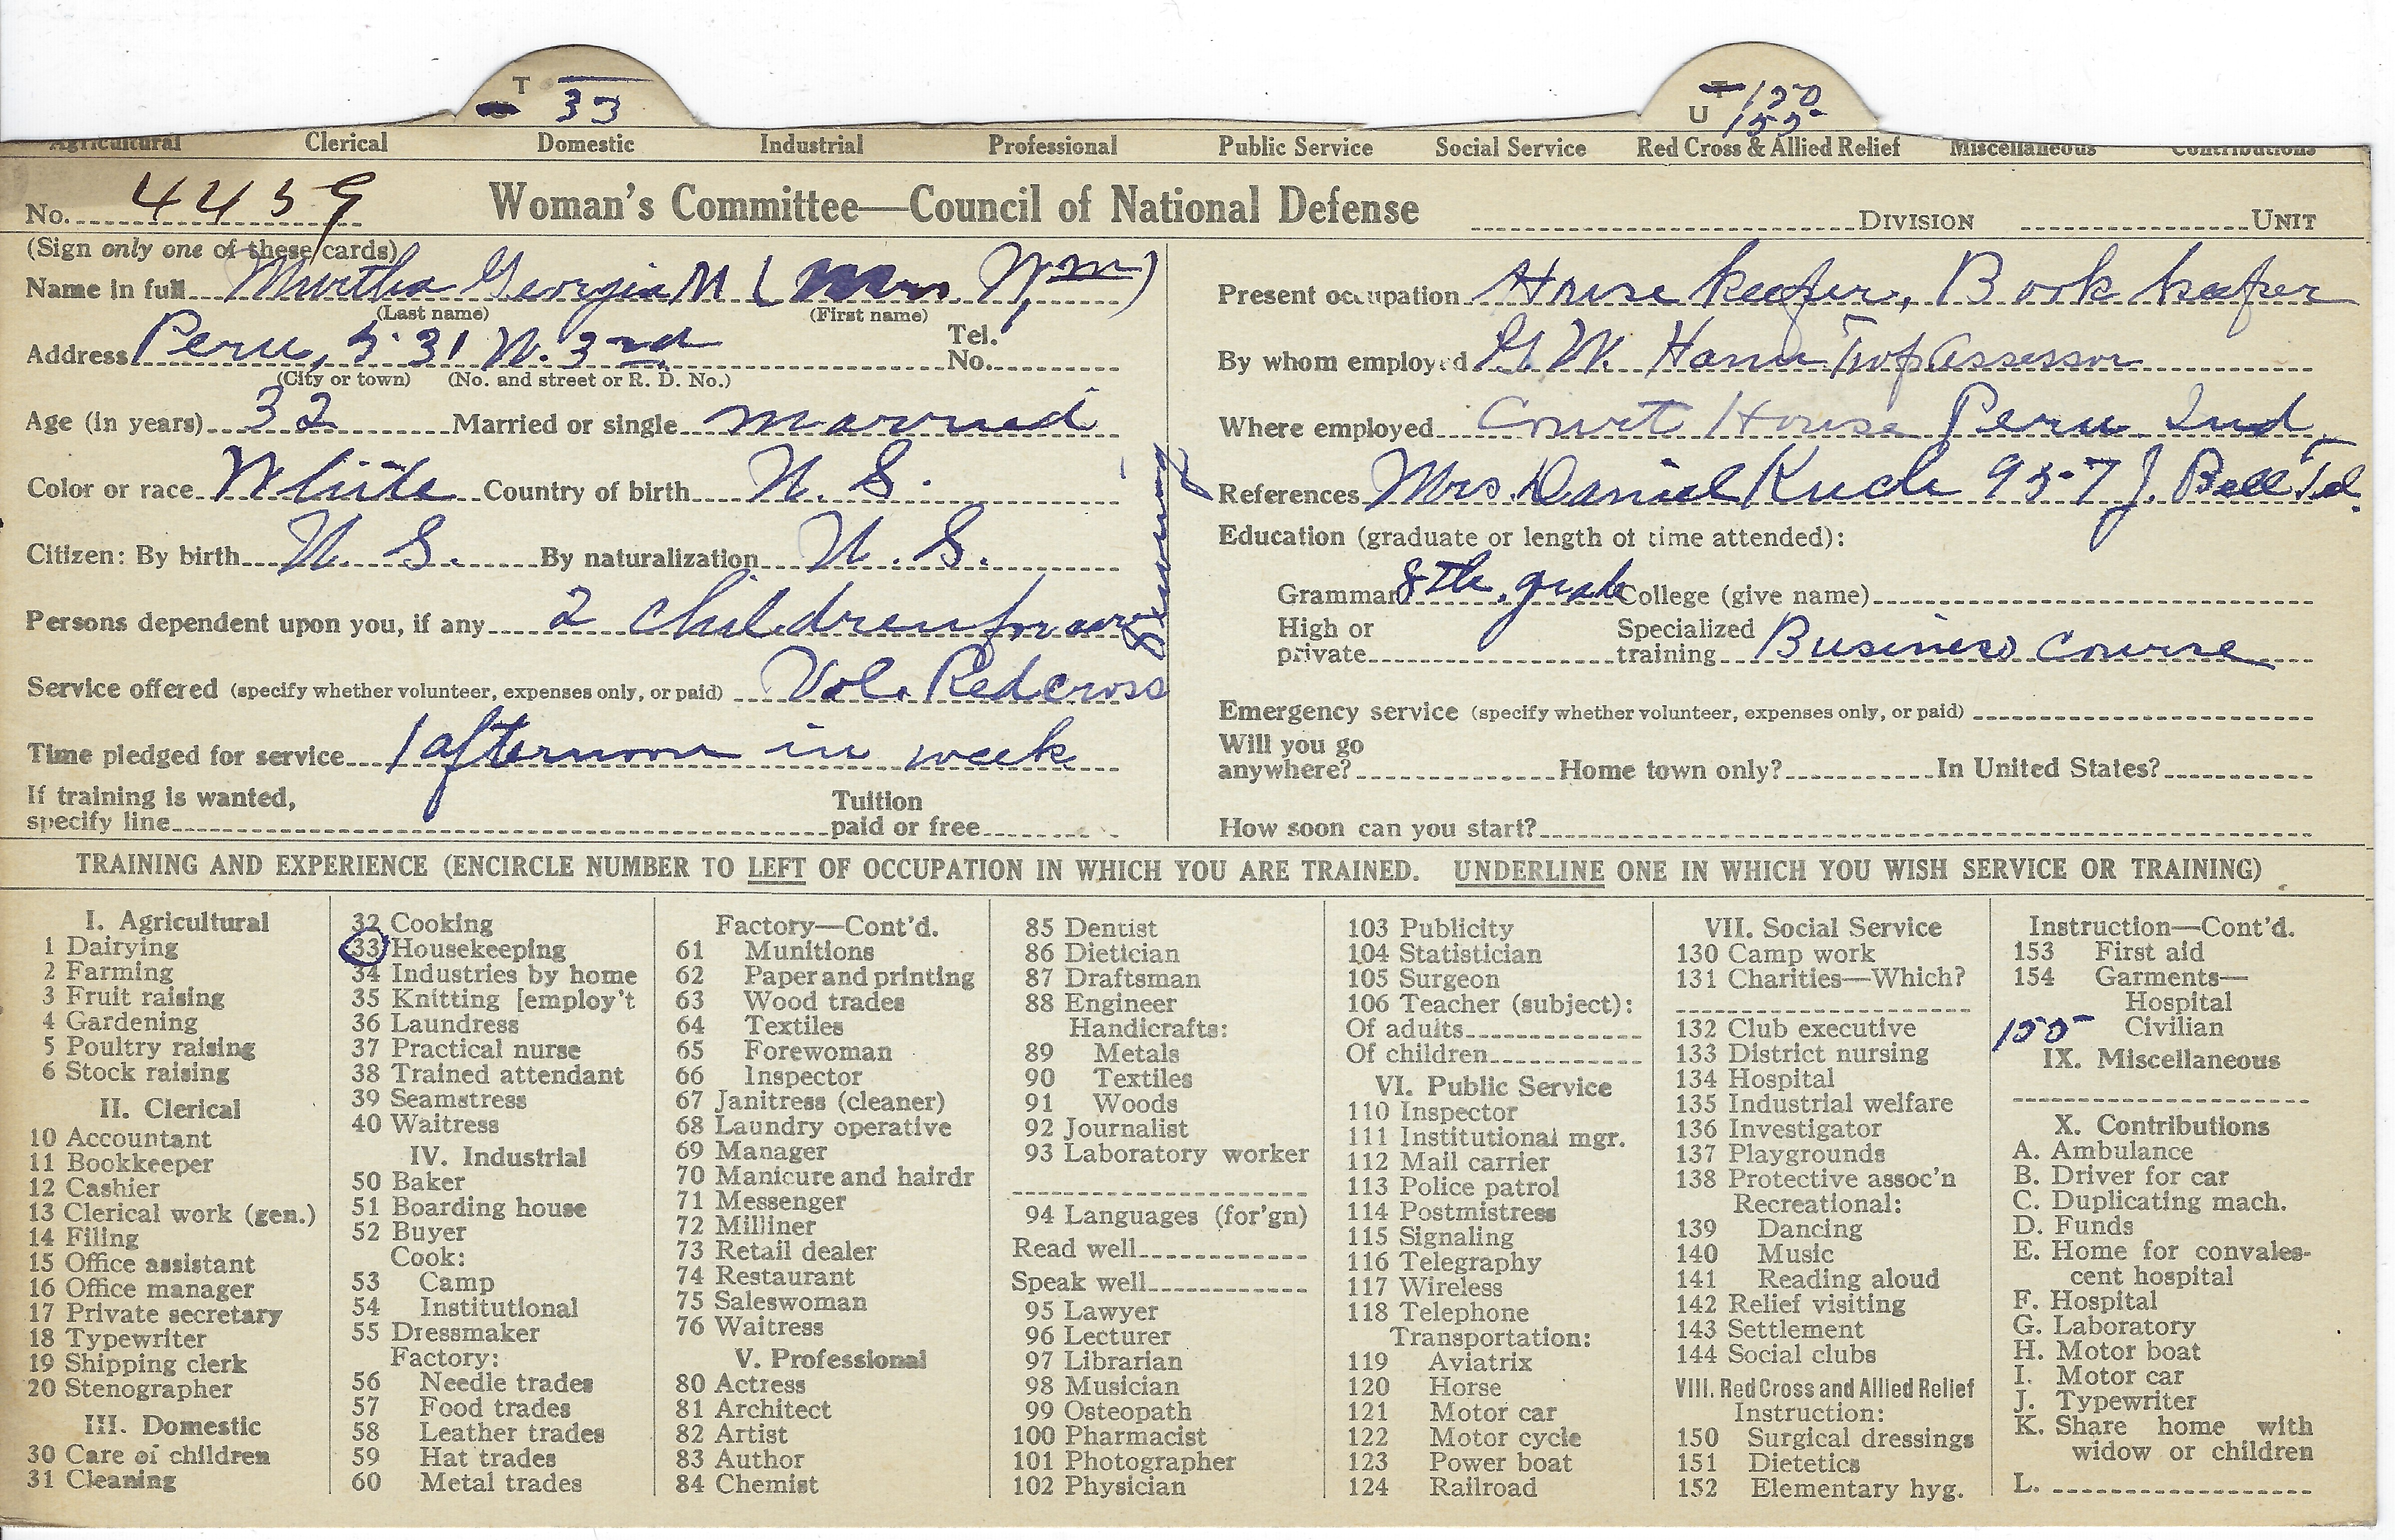 T 33
T 150
U 155
Agricultural Clerical Domestic Industrial Professional Public Service Social Service Red Cross & Allied Relief Miscellaneous Contributions
No. 4459 Woman's Committee—Council of National Defense DIVISION UNIT
(Sign only one of these cards)
Name in full Murtha Georgia M (Mrs Wm)
(Last name) (First name)
Address Peru, 531 W. 3rd Tel. No.
(City or town) (No. and street or R. D. No.)
Age (in years) 32 Married or single married
Color or race White Country of birth U. S.
Citizen: By birth U. S. By naturalization U. S.
Persons dependent upon you, if any 2 children
Service offered (specify whether volunteer, expenses only, or paid) Vol. Red cross
sewing
Time pledged for service 1 afternoon in week
If training is wanted, specify line Tuition paid or free
Present occupation House keeper, Book keeper
By whom employed W. Hann Twp Assessor
Where employed Court House Peru Ind.
References Mrs. Daniel 957 J. Bell Tel.
Education (graduate or length of time attended):
Grammar 8th. grade College (give name)
High or private Specialized training Business Course
Emergency service (specify whether volunteer, expenses only, or paid)
Will you go anywhere? Home town only? In United States?
How soon can you start?
TRAINING AND EXPERIENCE (ENCIRCLE NUMBER TO LEFT OF OCCUPATION IN WHICH YOU ARE TRAINED. UNDERLINE ONE IN WHICH YOU WISH SERVICE OR TRAINING)
I. Agricultural
1 Dairying
2 Farming
3 Fruit raising
4 Gardening
5 Poultry raising
6 Stock raising
II. Clerical
10 Accountant
11 Bookkeeper
12 Cashier
13 Clerical work (gen.)
14 Filing
15 Office assistant
16 Office manager
17 Private secretary
18 Typewriter
19 Shipping clerk
20 Stenographer
III. Domestic
30 Care of children
31 Cleaning
32 Cooking
33 Housekeeping
34 Industries by home
35 Knitting [employ't
36 Laundress
37 Practical nurse
38 Trained attendant
39 Seamstress
40 Waitress
IV. Industrial
50 Baker
51 Boarding house
52 Buyer
Cook:
53 Camp
54 Institutional
55 Dressmaker
Factory:
56 Needle trades
57 Food trades
58 Leather trades
59 Hat trades
60 Metal trades
Factory—Cont'd.
61 Munitions
62 Paper and printing
63 Wood trades
64 Textiles
65 Forewoman
66 Inspector
67 Janitress (cleaner)
68 Laundry operative
69 Manager
70 Manicure and hairdr
71 Messenger
72 Milliner
73 Retail dealer
74 Restaurant
75 Saleswoman
76 Waitress
V. Professional
80 Actress
81 Architect
82 Artist
83 Author
84 Chemist
85 Dentist
86 Dietician
87 Draftsman
88 Engineer
Handicrafts:
89 Metals
90 Textiles
91 Woods
92 Journalist
93 Laboratory worker
94 Languages (for'gn)
Read well
Speak well
95 Lawyer
96 Lecturer
97 Librarian
98 Musician
99 Osteopath
100 Pharmacist
101 Photographer
102 Physician
103 Publicity
104 Statistician
105 Surgeon
106 Teacher (subject):
Of adults
Of children
VI. Public Service
110 Inspector
111 Institutional mgr.
112 Mail carrier
113 Police patrol
114 Postmistress
115 Signaling
116 Telegraphy
117 Wireless
118 Telephone
Transportation:
119 Aviatrix
120 Horse
121 Motor car
122 Motor cycle
123 Power boat
124 Railroad
VII. Social Service
130 Camp work
131 Charities—Which?
132 Club executive
133 District nursing
134 Hospital
135 Industrial welfare
136 Investigator
137 Playgrounds
138 Protective assoc'n
Recreational:
139 Dancing
140 Music
141 Reading aloud
142 Relief visiting
143 Settlement
144 Social clubs
VIII. Red Cross and Allied Relief
Instruction:
150 Surgical dressings
151 Dietetics
152 Elementary hyg.
Instruction—Cont'd.
153 First aid
154 Garments—
Hospital
155 Civilian
IX. Miscellaneous
X. Contributions
A. Ambulance
B. Driver for car
C. Duplicating mach.
D. Funds
E. Home for convales-
cent hospital
F. Hospital
G. Laboratory
H. Motor boat
I. Motor car
J. Typewriter
K. Share home with
widow or children
L.